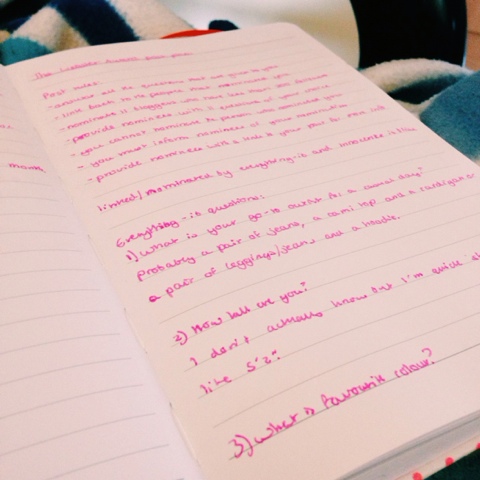 The Liebster Award
Post rules:
- answer all the questions that are given to you
- link back to the people that nominated you
- nominate 11 bloggers who have less than
- provide nominees with 11 questions of your choice
- you cannot nominate the person who nominated you
- you must inform nominees of your nomination
- provide nominees with a link to your post
linked/nominated by everything-is and
Everything-is questions:
1) what is your go-to outfit for a casual day?
Probably a pair of jeans, a cami top and a cardigan or
a pair of leggings/jeans and a hoodie.
2) How tall are you?
I don't actually know but I'm quite
like 5'2".
3) what is favourite colour?
mom